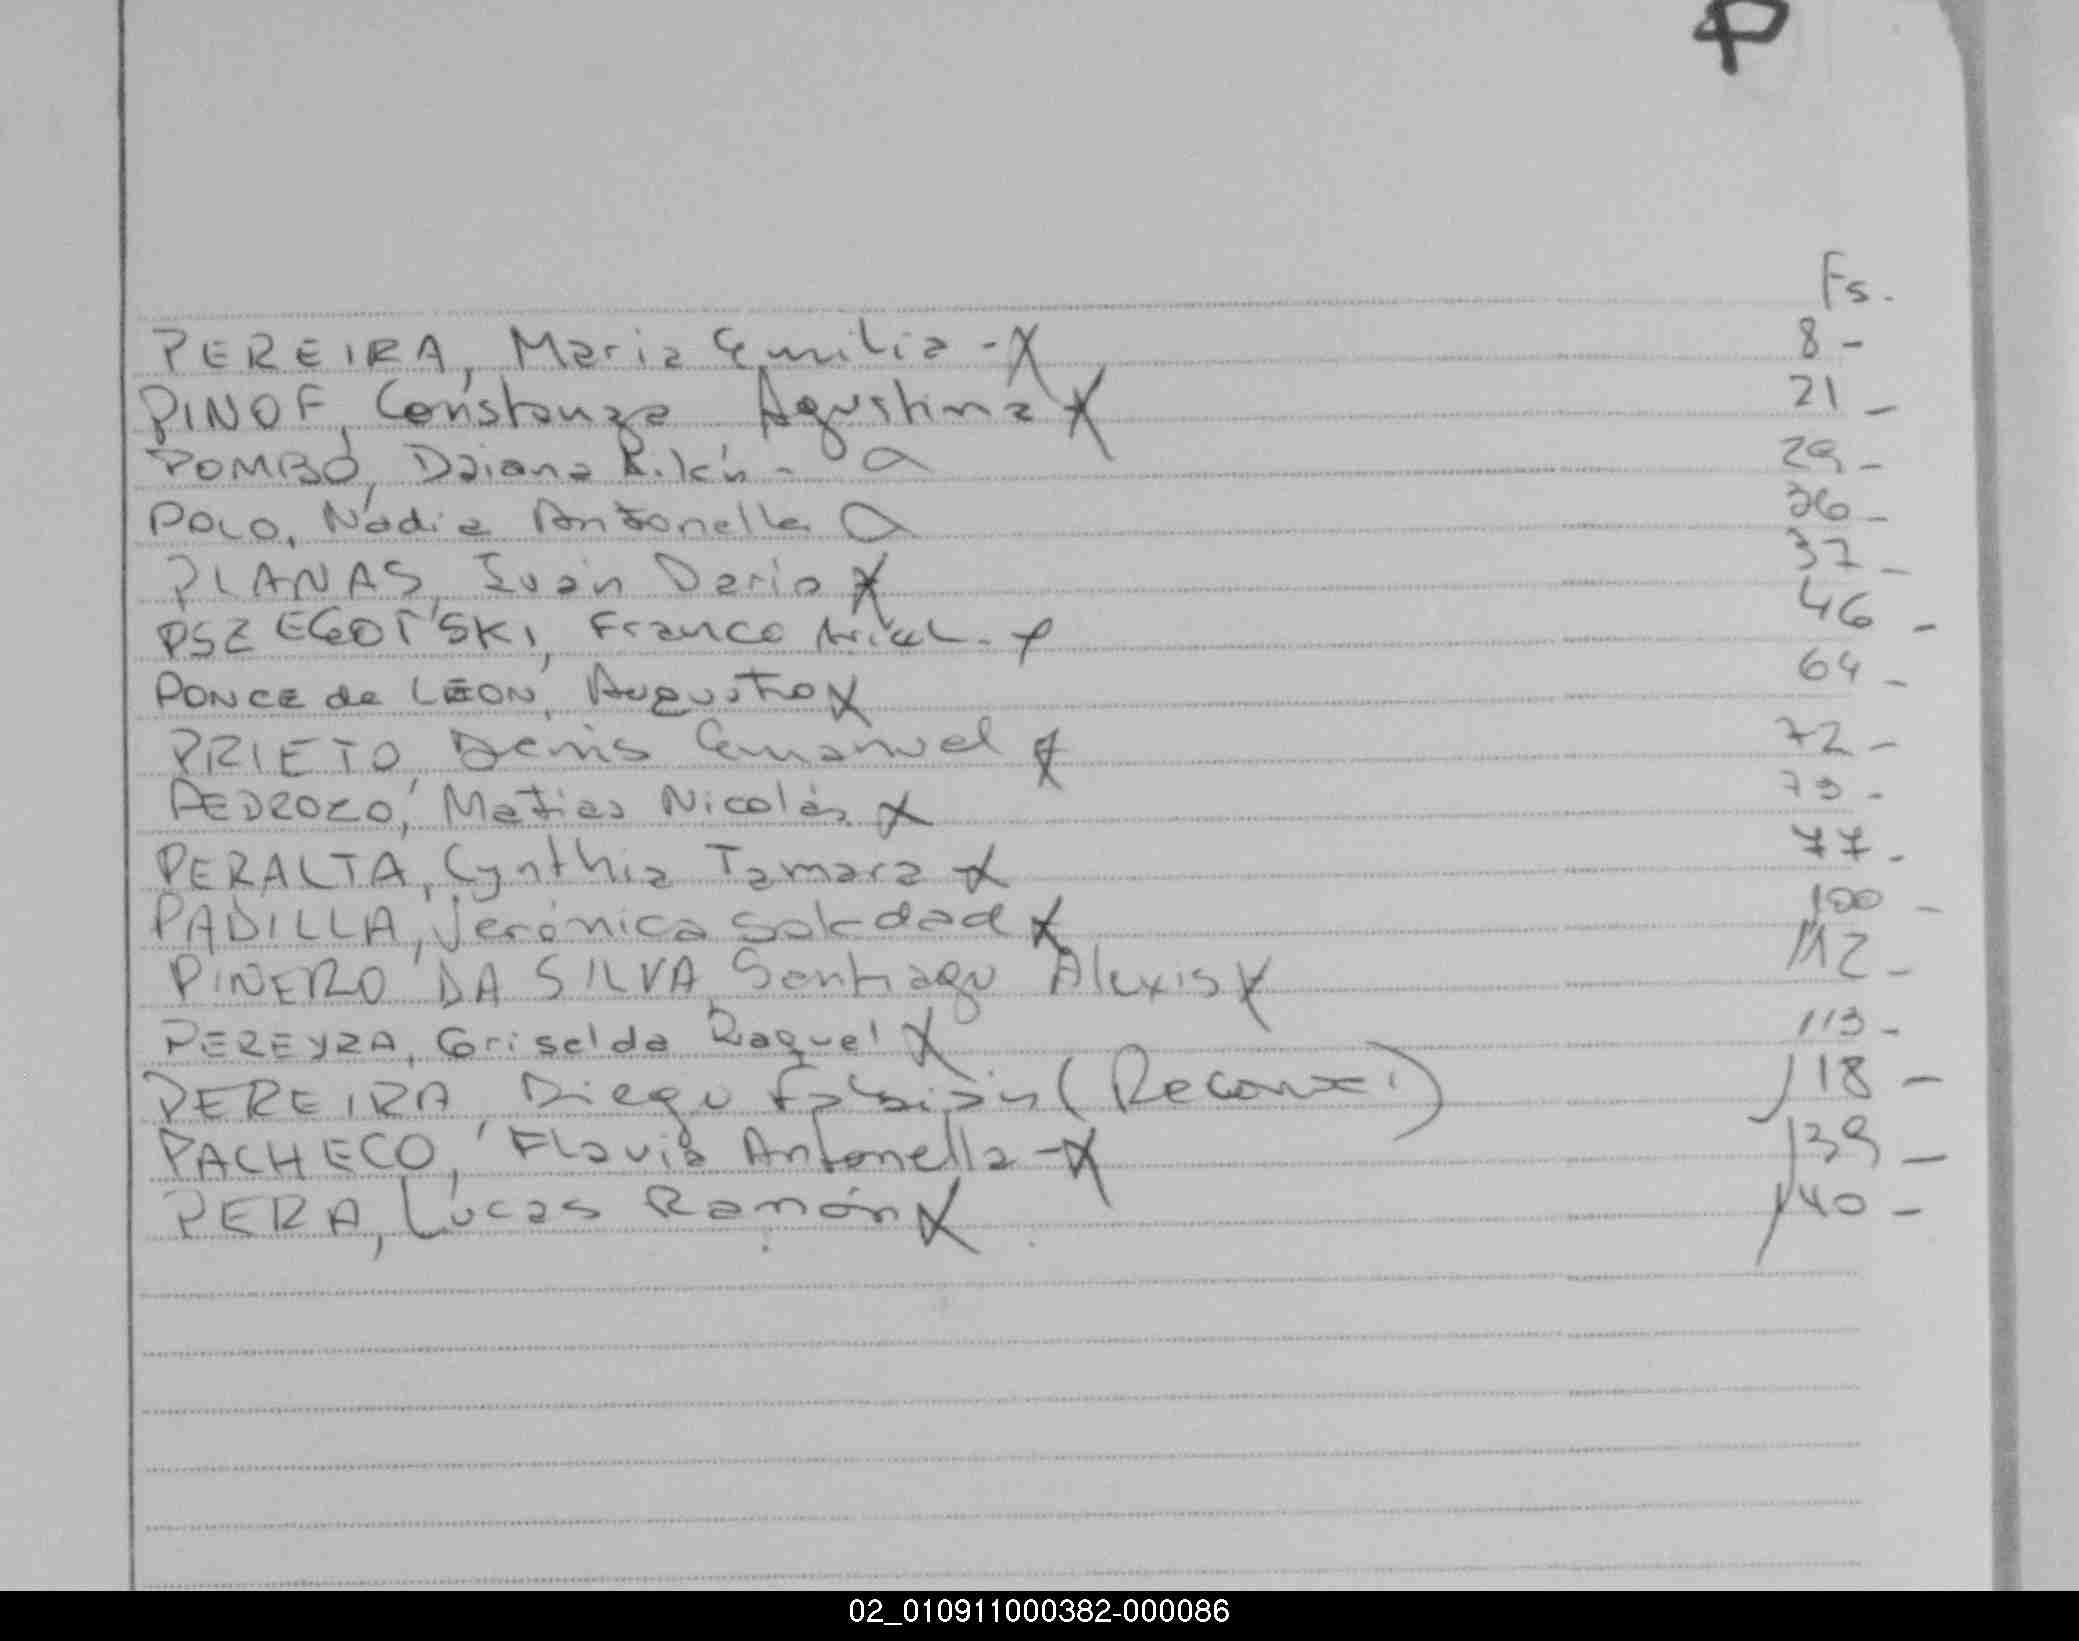 P
Fs.
PEREIRA, Maria Emilia - X 8 -
PINOF, Constanza Agustina X 21 -
POMBO, Daiana 29 -
POLO, Nadia Antonella 36 -
PLANAS, Iván Dario X 37 -
PSZEGOT'SKI, Franco Ariel - 46 -
PONCE de LEON, Augusto X 64 -
PRIETO, Denis Emanuel X 72 -
PEDROZO, Matias Nicolás X 73 -
PERALTA, Cynthia Tamara X 77 -
PADILLA, Verónica Soledad X 100 -
PINEIRO DA SILVA, Santiago Alexis X 112 -
PEREYRA, Griselda Raquel X 113 -
PEREIRA, Diego Fabián 118 -
PACHECO, Flavia Antonella - X 139 -
PERA, Lucas Ramón X 140 -
02_010911000382-000086